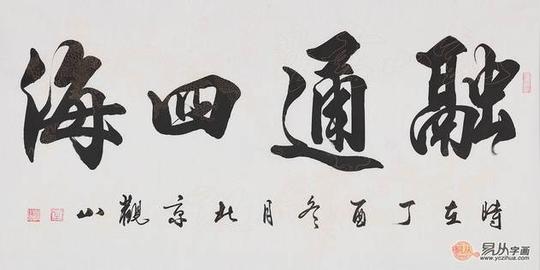 融通四海
時在丁酉冬月北京觀山
易从字画
www.yczihua.com